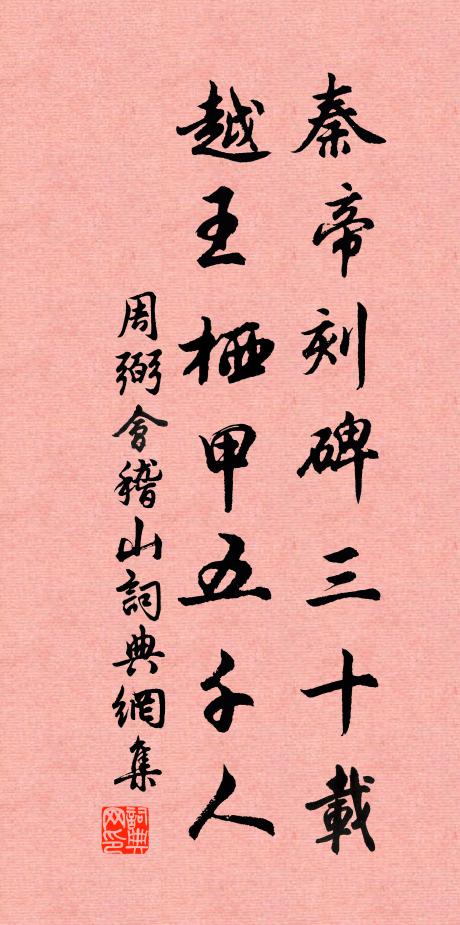 秦帝刻碑三十載
越王栖甲五千人
周弼會稽山詞典網集
詞典網印